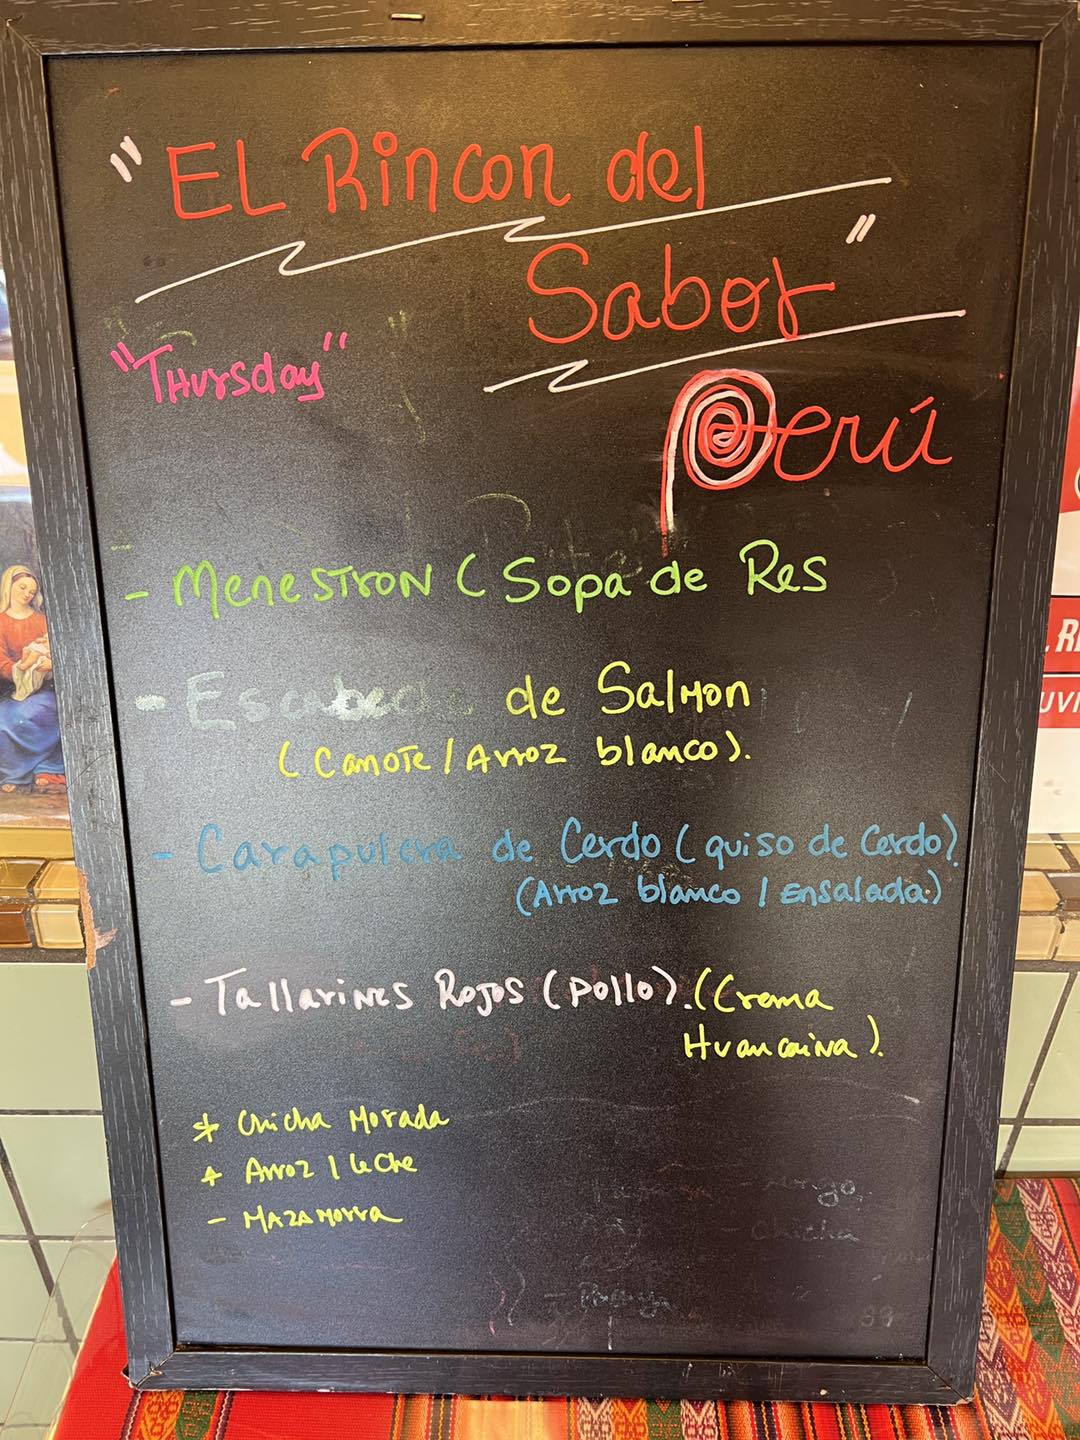 "EL Rincon del
Sabor"
"Thursday"
Perú
- Menestron (Sopa de Res
- Escabeche de Salmon
(Camote / Arroz blanco).
- Carapulcra de Cerdo (quiso de Cerdo).
(Arroz blanco / Ensalada)
- Tallarines Rojos (pollo). (Crema
Huancaina).
* Chicha Morada
+ Arroz / leche
- Mazamorra
chicha